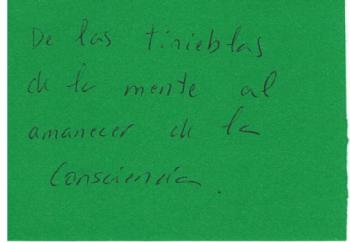 De las tinieblas
de la mente al
amanecer de la
Consciencia.